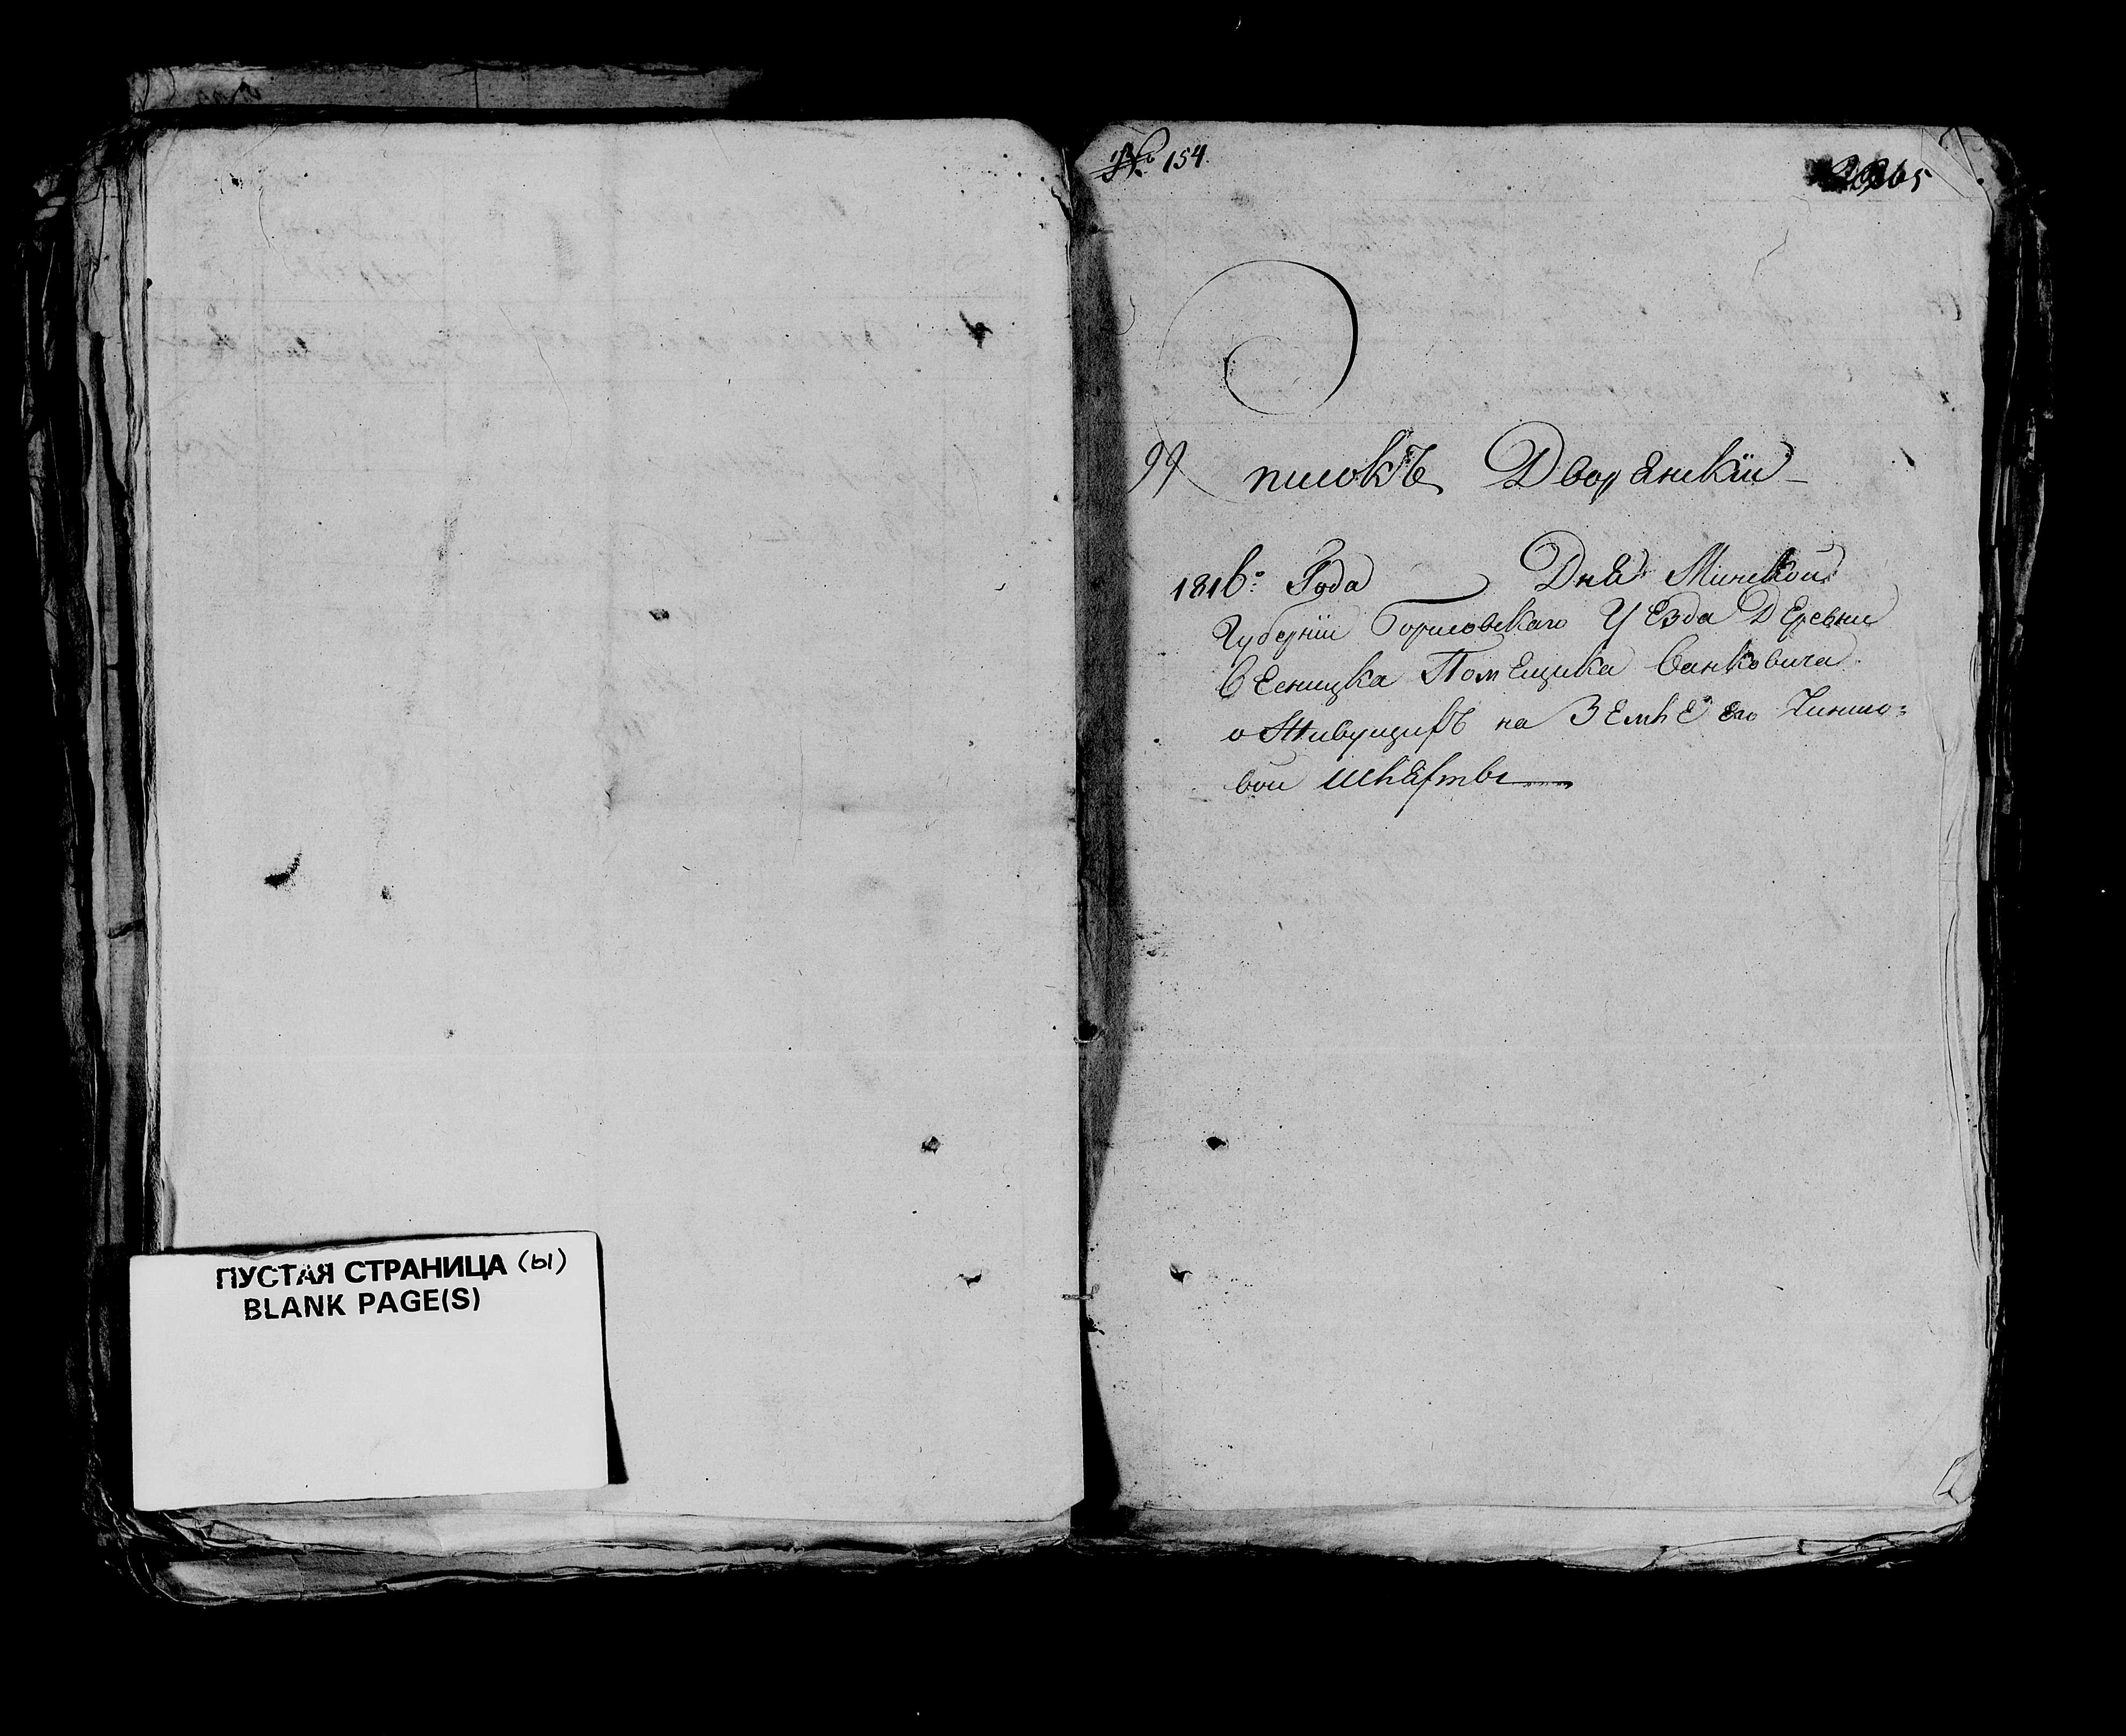 ПУСТАЯ СТРАНИЦА (ы)
BLANK PAGE(S)
№ 154.
99 Списокъ Дворянскїи
1816го Года Дня Минскои
Губернїи Борисовскаго Уезда Деревни
Весницка Помещика Ванковича
о Живущихъ на Земле его Чиншо=
вои шляхты